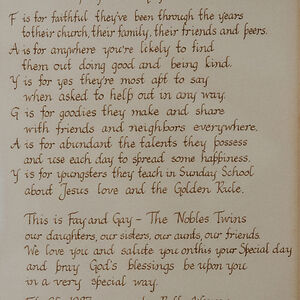 F is for faithful they've been through the years
to their church, their family, their friends and peers.
A is for anywhere you're likely to find
them out doing good and being kind.
Y is for yes they're most apt to say
when asked to help out in any way.
G is for goodies they make and share
with friends and neighbors everywhere.
A is for abundant the talents they possess
and use each day to spread some happiness.
Y is for youngsters they teach in Sunday School
about Jesus love and the Golden Rule.
This is Fay and Gay - The Nobles Twins
our daughters, our sisters, our aunts, our friends.
We love you and salute you on this your Special day
and pray God's blessings be upon you
in a very special way.